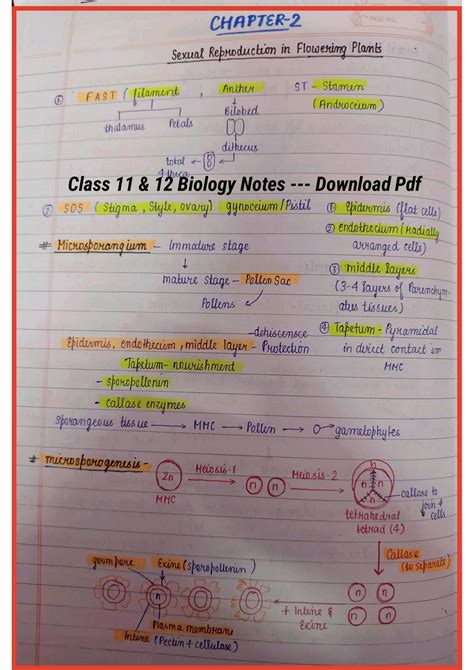 CHAPTER-2
Sexual Reproduction in Flowering Plants
① FAST ( filament , Anther ST - Stamen
(Androecium)
thalamus Petals Bilobed
dithecus
total 4 theca
Class 11 & 12 Biology Notes --- Download Pdf
② SOS ( Stigma , Style , ovary) gynoecium / Pistil
# Microsporangium - Immature stage
mature stage - Pollen Sac
Pollens
① Epidermis (flat cells)
② endothecium (radially
arranged cells)
③ middle layers
(3-4 layers of Parenchym-
ates tissues)
④ Tapetum - Pyramidal
in direct contact
MMC
- dehiscensce
Epidermis, endothecium , middle layer - Protection
Tapetum - nourishment
- sporopollenin
- callase enzymes
Sporangeous tissue → MMC → Pollen → gametophytes
# microsporogenesis -
2n
MMC
Meiosis-1
n n
Meiosis-2
n n n
callose to
join 4
cells
tetrahedral
tetrad (4)
Callase
(to separate)
n n
n n
+ Intine &
Exine
germpore Exine (sporopollenin)
n
Plasma membrane
Intine (Pectin + cellulose)